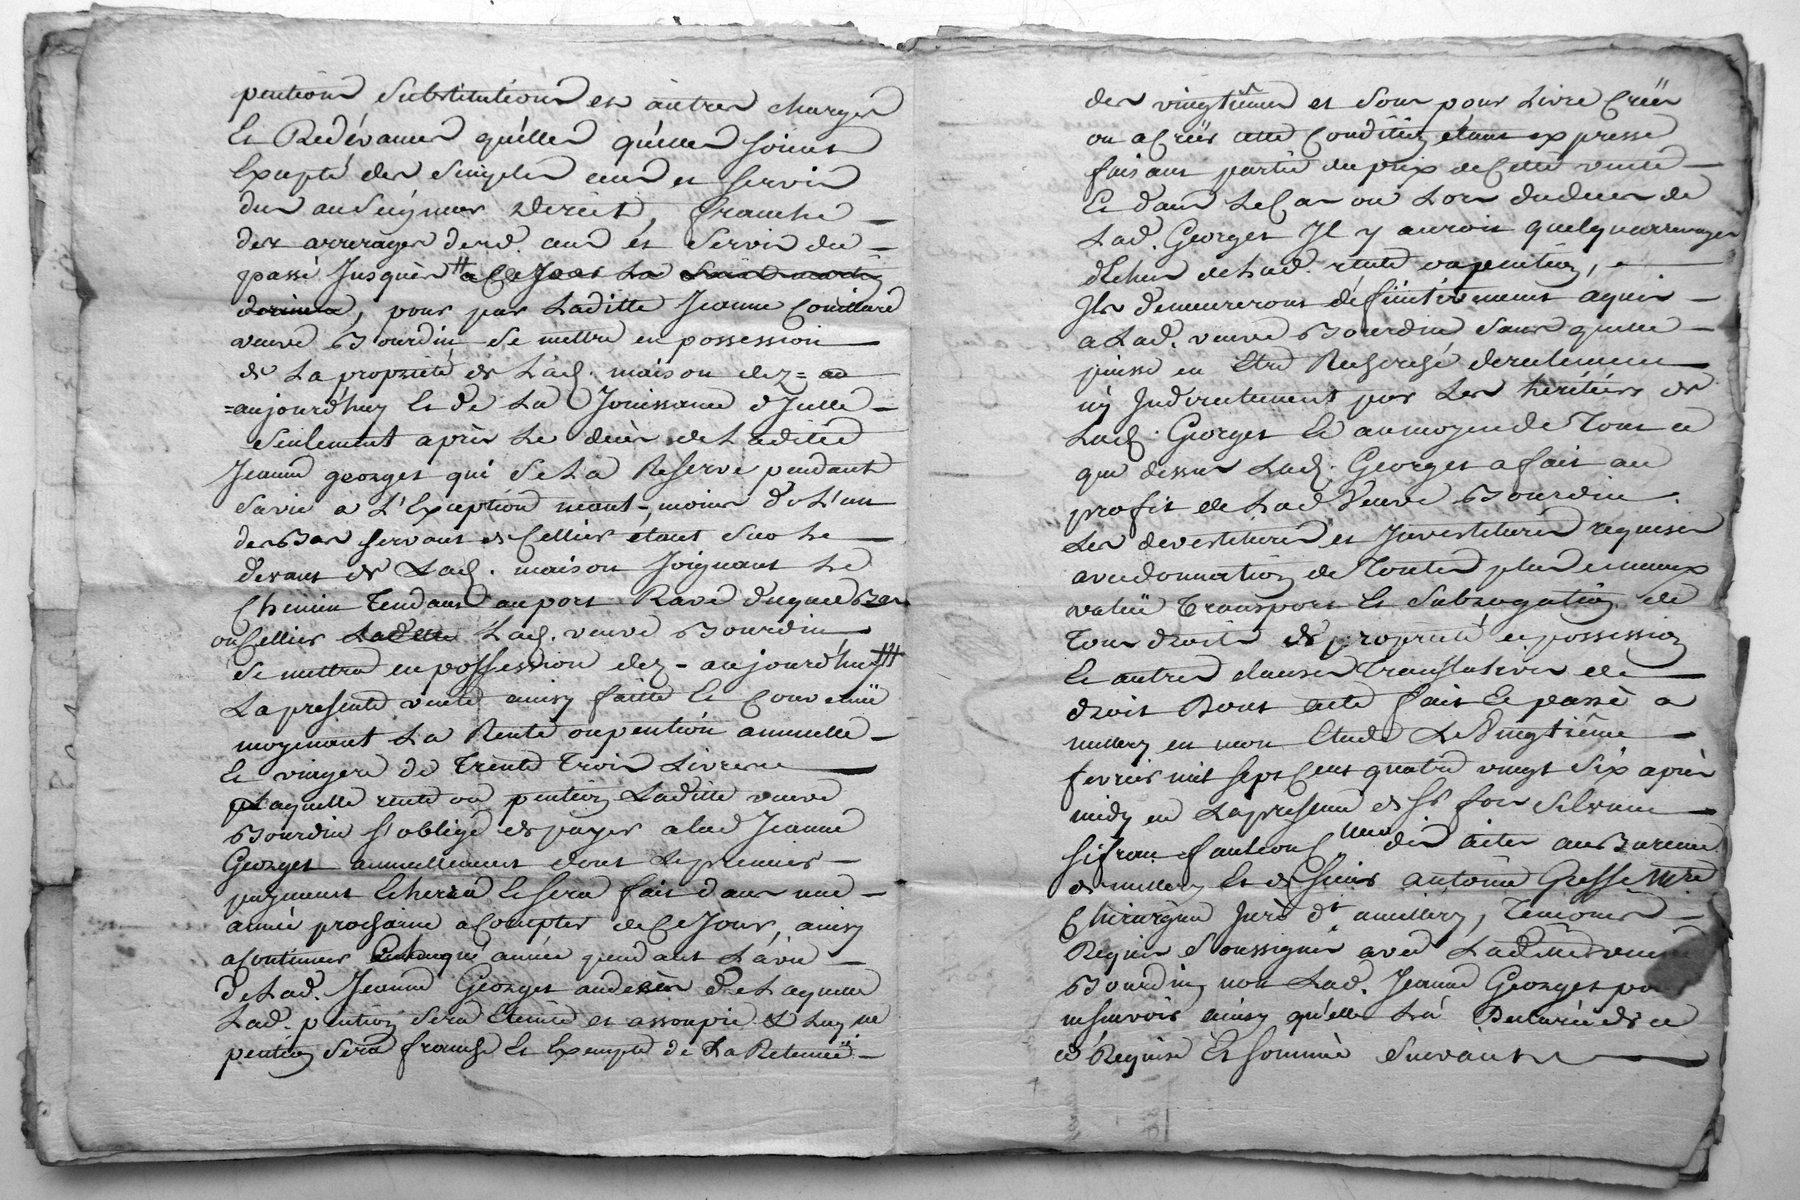 pentions substitutions et autres charges
Et Redévances quélles quélles soient
Excepté des simples cens et servis
dus au Seigneur direct, franche
des arrerages desd. cens et servis du
passé Jusques a Ce Jour La Saint martin
derniere, pour par Laditte Jeanne Couillard
veuve Bourdin se mettre en possession
de La propriété de Lad. maison dez = au
=aujourd'huy Et de La Jouissance d'Jcelle
seulement après Le decès de Laditte
Jeanne georges qui se La Reserve pendant
sa vie a L'Exception neant-moins de L'un
des Bas servant de Cellier etant sur Le
devant de Lad. maison Joignant Le
Chemin Tendant au port Ravé duquel Bas
ou Cellier Laditte Lad. veuve Bourdin
se mettra en possession dez-aujourd'huy
La presente vente ainsy faitte Et Convenüe
moyenant La Rente ou pention annuelle
Et viagere de Trente Trois Livres
Laquelle rente ou pention Laditte veuve
Bourdin s'obligé de payer a lad Jeanne
Georges annuellement dont Le premier
payement Echerra Et sera fait dans une
année prochaine a Compter de Ce Jour, ainsy
a Continuer Chaque année pendant La vie
de Lad. Jeanne Georges au deces de Laquelle
Lad. pention sera Eteinte et assoupie Laquelle
pention sera franche Et Exempte de La Retenüe
des vingtiêmes et sous pour Livre Créés
ou a Créér cette Condition etant expresse
faisant partie du prix de Cette vente
Et dans Le Cas ou Lors du deces de
Lad. Georges Il y auroit quelqu arrerages
d'Echus de Lad. rente ou pention,
Ils demeureront définitivement aquis
a Lad. veuve Bourdin sans quelle
puisse en Etre Recherché directement
ny Indirectement par Les héritiers de
Lad. Georges Et au moyen de Tout ce
que dessus Lad. Georges a fait au
profit de Lad Veuve Bourdin
Les devestitures et Investitures requises
avec donnation de Toutes plus et meux
valüe Transport Et Subrogation de
Tous droits de proprieté et possession
Et autres clauses translatives de
droit Dont acte fait Et passé a
millery en mon Etude Le Vingtième
fevrier mil sept Cent quatre vingt six après
midy en La presence de Sr foi Silvain
Sifran Commis des actes au Bureau
de millery Et de Sieur antoine Gresse Me
Chirurgien Juré dt a millery, Temoins
Requis Soussignés avec Lad veuve
Bourdin, non Lad. Jeanne Georges pour
ne sçavoir ainsy qu'elle L'a Declarée de ce
Requise Et sommée suivant